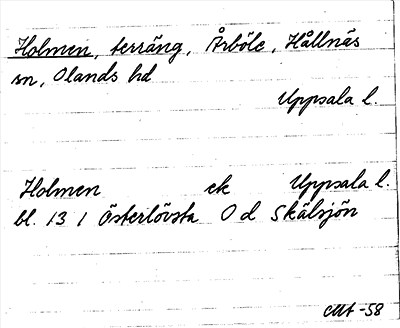 Holmen, terräng, Årböle, Hållnäs
sn, Olands hd
Uppsala l.
Holmen ek Uppsala l.
bl. 13 1 Österlövsta O d Skälsjön
-58